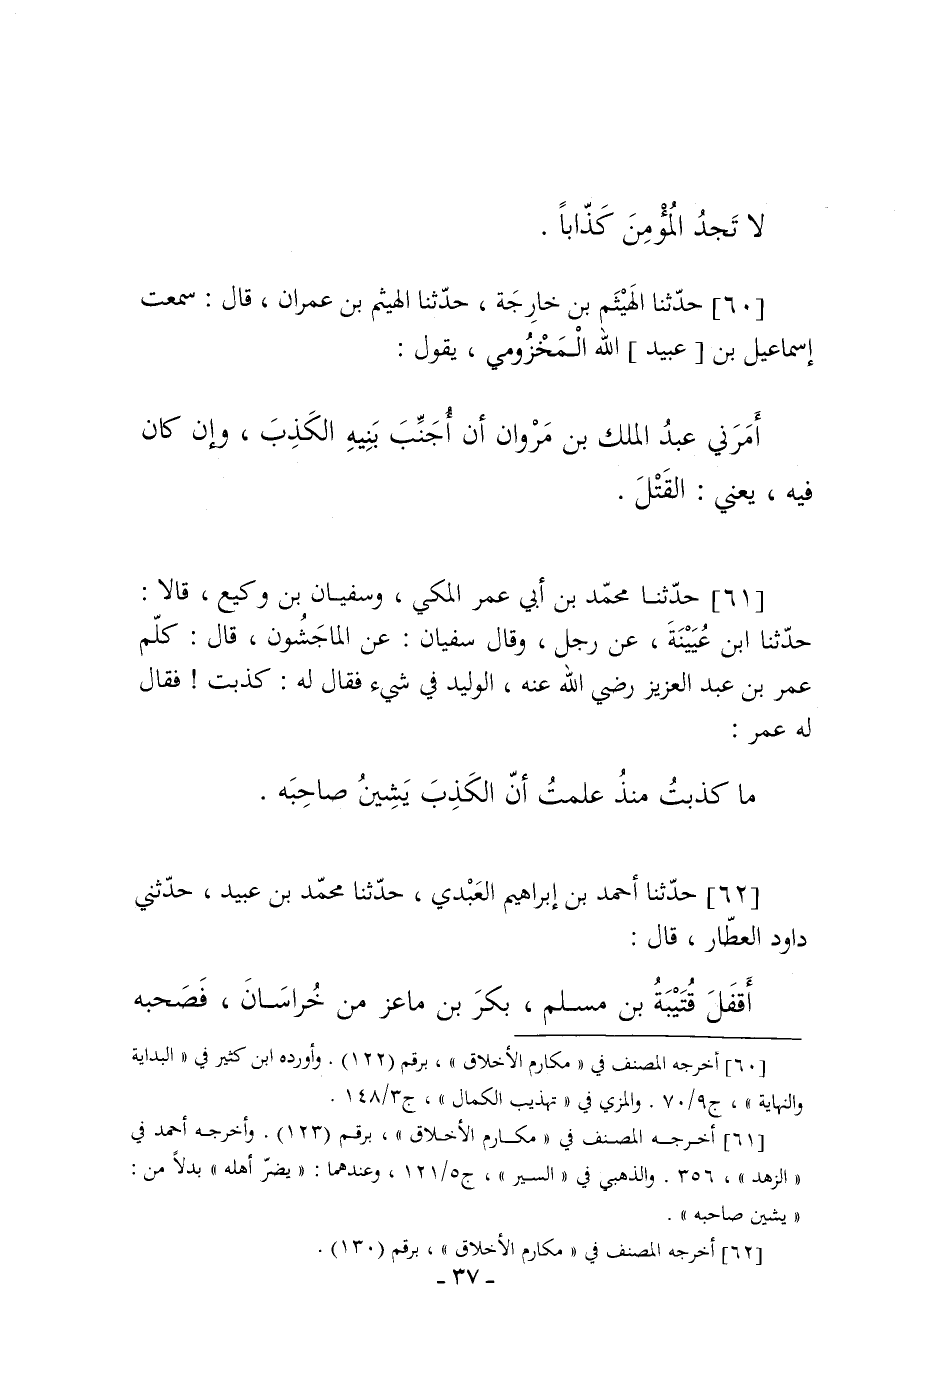 لا تَجدُ المُؤْمِنَ كَذّاباً .
[٦٠] حدّثنا الهَيْثَم بن خارِجَة ، حدّثنا الهيثم بن عمران ، قال : سمعت
إسماعيل بن [ عبيد ] الله الْمَخْزُومي ، يقول :
أَمَرَني عبدُ الملك بن مَرْوان أن أُجَنِّبَ بَنِيهِ الكَذِبَ ، وإن كان
فيه ، يعني : القَتْلَ .
[٦١] حدّثنا محمّد بن أبي عمر المكي ، وسفيان بن وكيع ، قالا :
حدّثنا ابن عُيَيْنَةَ ، عن رجل ، وقال سفيان : عن الماجَشُون ، قال : كلّم
عمر بن عبد العزيز رضي الله عنه ، الوليد في شيء فقال له : كذبت ! فقال
له عمر :
ما كذبتُ منذُ علمتُ أنّ الكَذِبَ يَشِينُ صاحِبَه .
[٦٢] حدّثنا أحمد بن إبراهيم العَبْدي ، حدّثنا محمّد بن عبيد ، حدّثني
داود العطّار ، قال :
أَقفَلَ قُتَيْبَةُ بن مسلم ، بكرَ بن ماعز من خُراسَانَ ، فَصَحبه
[٦٠] أخرجه المصنف في « مكارم الأخلاق » ، برقم (١٢٢) . وأورده ابن كثير في « البداية
والنهاية » ، ج٧٠/٩ . والمزي في « تهذيب الكمال » ، ج١٤٨/٣ .
[٦١] أخرجه المصنف في « مكارم الأخلاق » ، برقم (١٢٣) . وأخرجه أحمد في
« الزهد » ، ٣٥٦ . والذهبي في « السير » ، ج١٢١/٥ ، وعندهما : « يضرّ أهله » بدلاً من :
« يشين صاحبه » .
[٦٢] أخرجه المصنف في « مكارم الأخلاق » ، برقم (١٣٠) .
- ٣٧ -